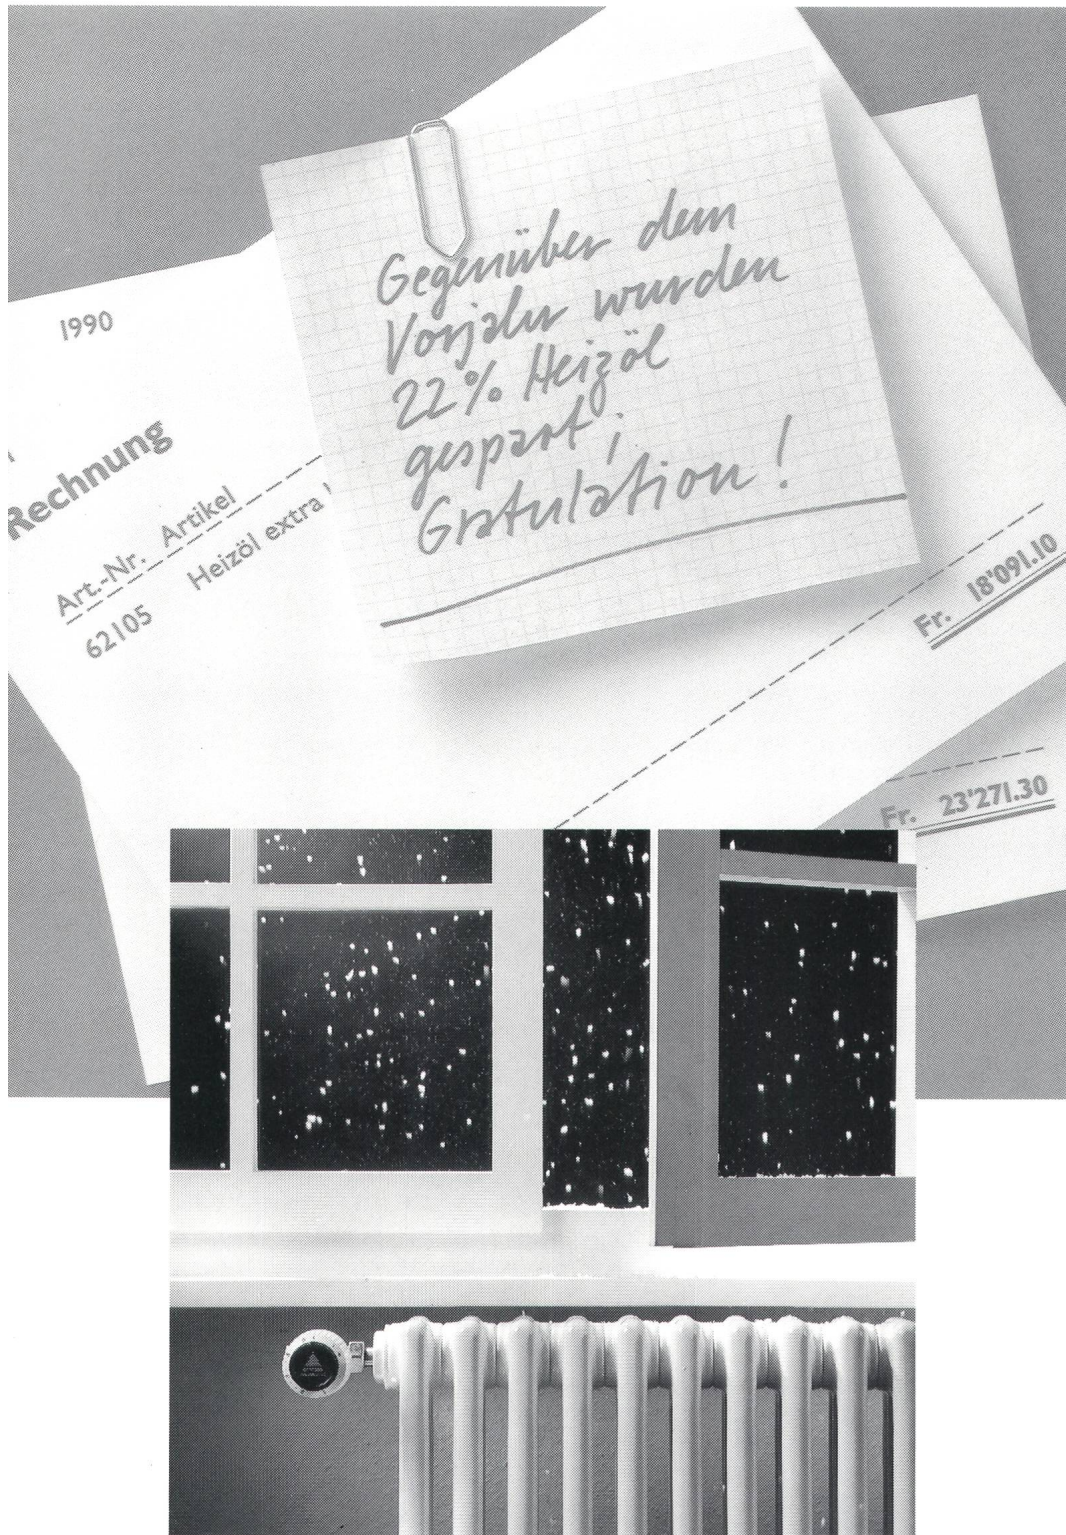 1990
Rechnung
Art.-Nr. Artikel
62105 Heizöl extra
Gegenüber dem
Vorjahr wurden
22% Heizöl
gespart;
Gratulation!
Fr. 18'091.10
Fr. 23'271.30